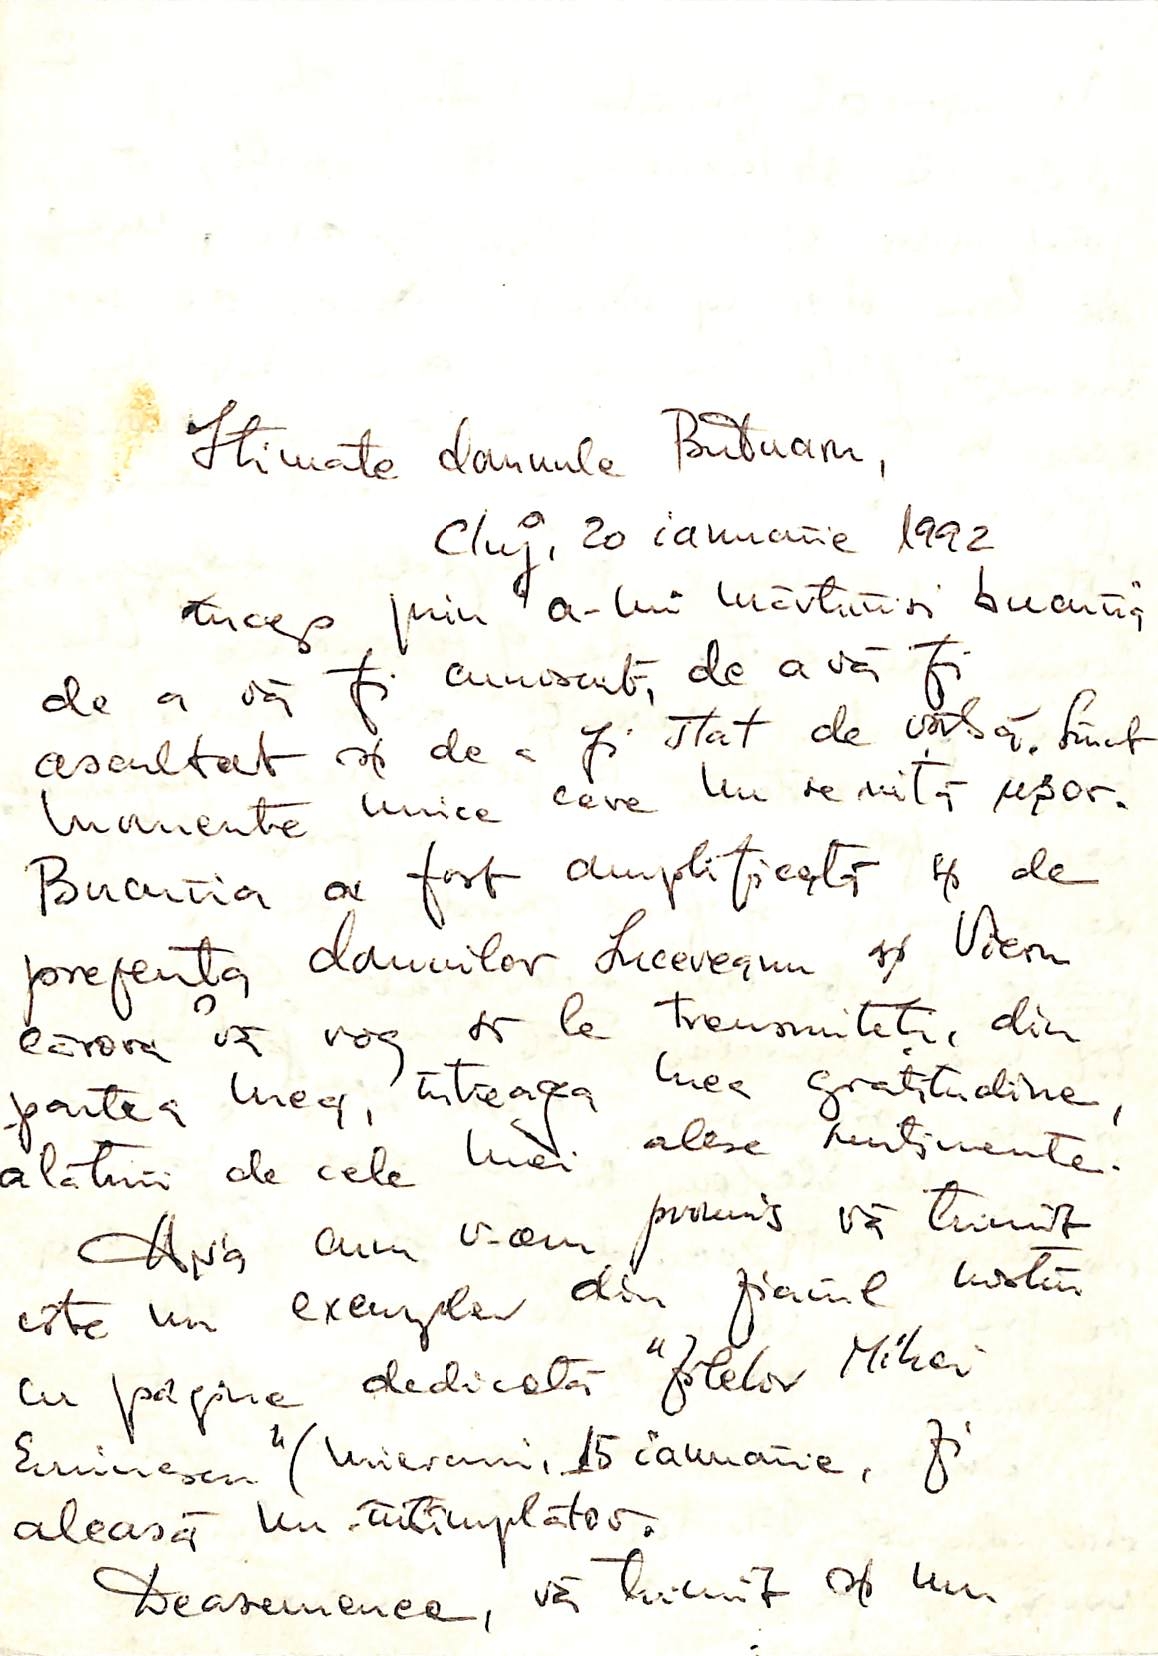 Stimate domnule Butunaru,
Cluj, 20 ianuarie 1992
Încep prin a-mi mărturisi bucuria
de a vă fi cunoscut, de a vă fi
ascultat și de a fi stat de vorbă. Sînt
momente unice care nu se uită ușor.
Bucuria a fost amplificată și de
prezența domnilor Luceveanu și Vieru
cărora vă rog să le transmiteți, din
partea mea, întreaga mea gratitudine,
alături de cele mai alese sentimente.
Așa cum v-am promis vă trimit
cîte un exemplar din ziarul nostru
cu pagina dedicată "zilelor Mihai
Eminescu" (miercuri, 15 ianuarie, zi
aleasă nu întîmplător.
Deasemenea, vă trimit și un